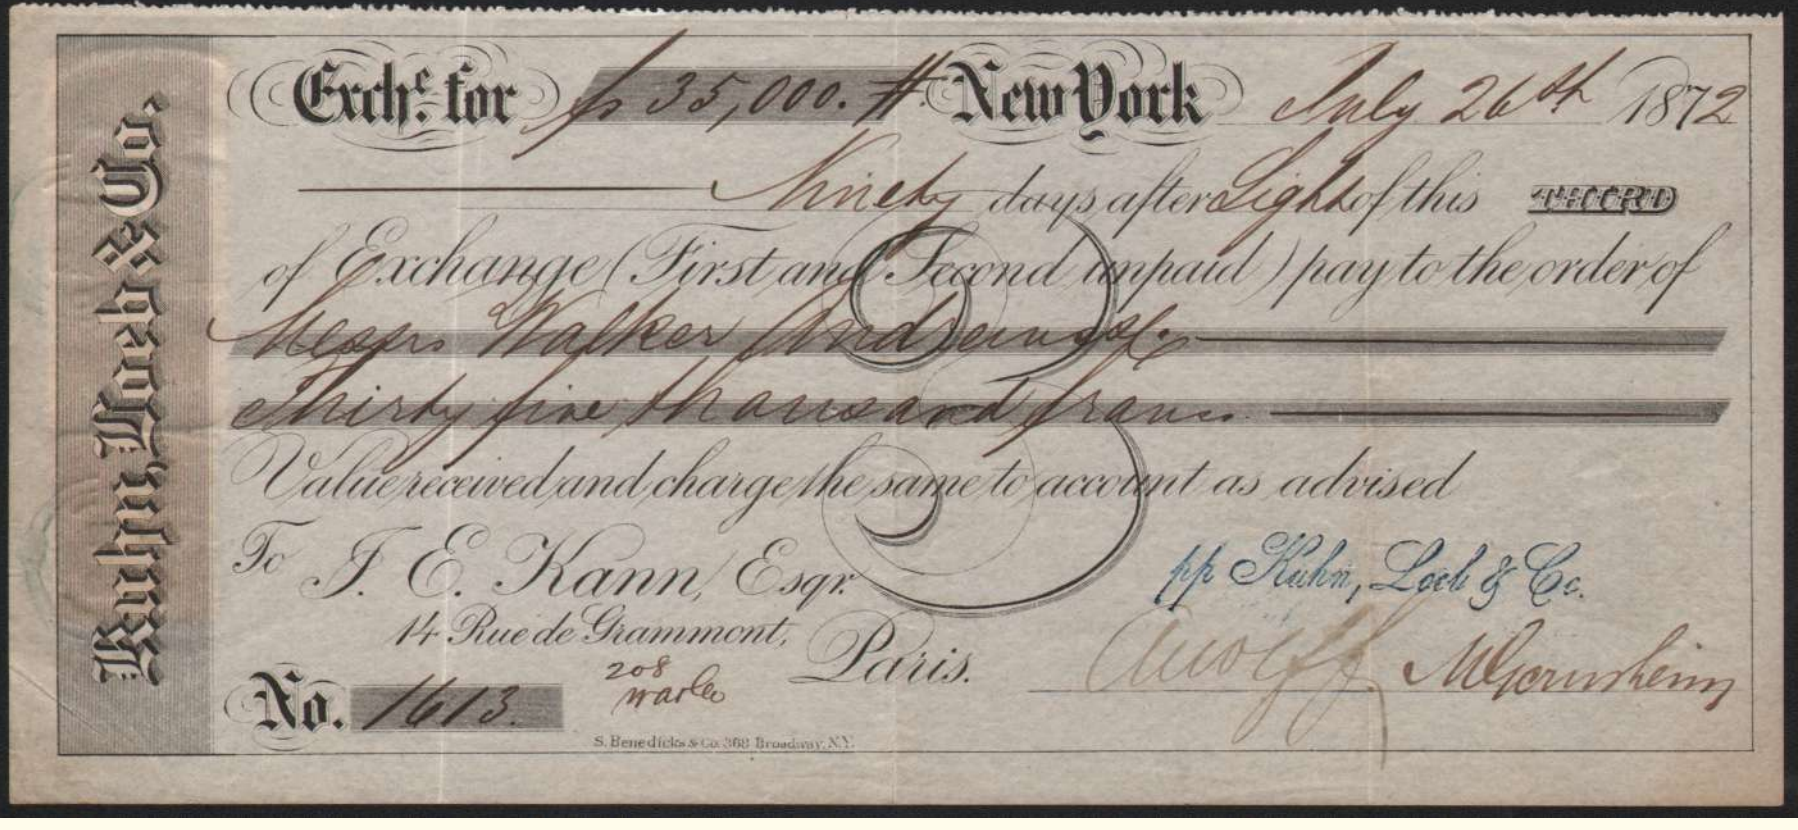 Kuhn, Loeb & Co.
Exchᵉ. for fs 35,000.# New York July 26th 1872
Ninety days after Sight of this THIRD
of Exchange (First and Second unpaid) pay to the order of
Messrs Walker Andrews & Co
Thirty five thousand francs
Value received and charge the same to account as advised
To J. E. Kann, Esqr.
14 Rue de Grammont, Paris.
pp Kuhn, Loeb & Co.
AWolff MGernsheim
No. 1613.
208
S. Benedicks & Co. 368 Broadway. N.Y.
3